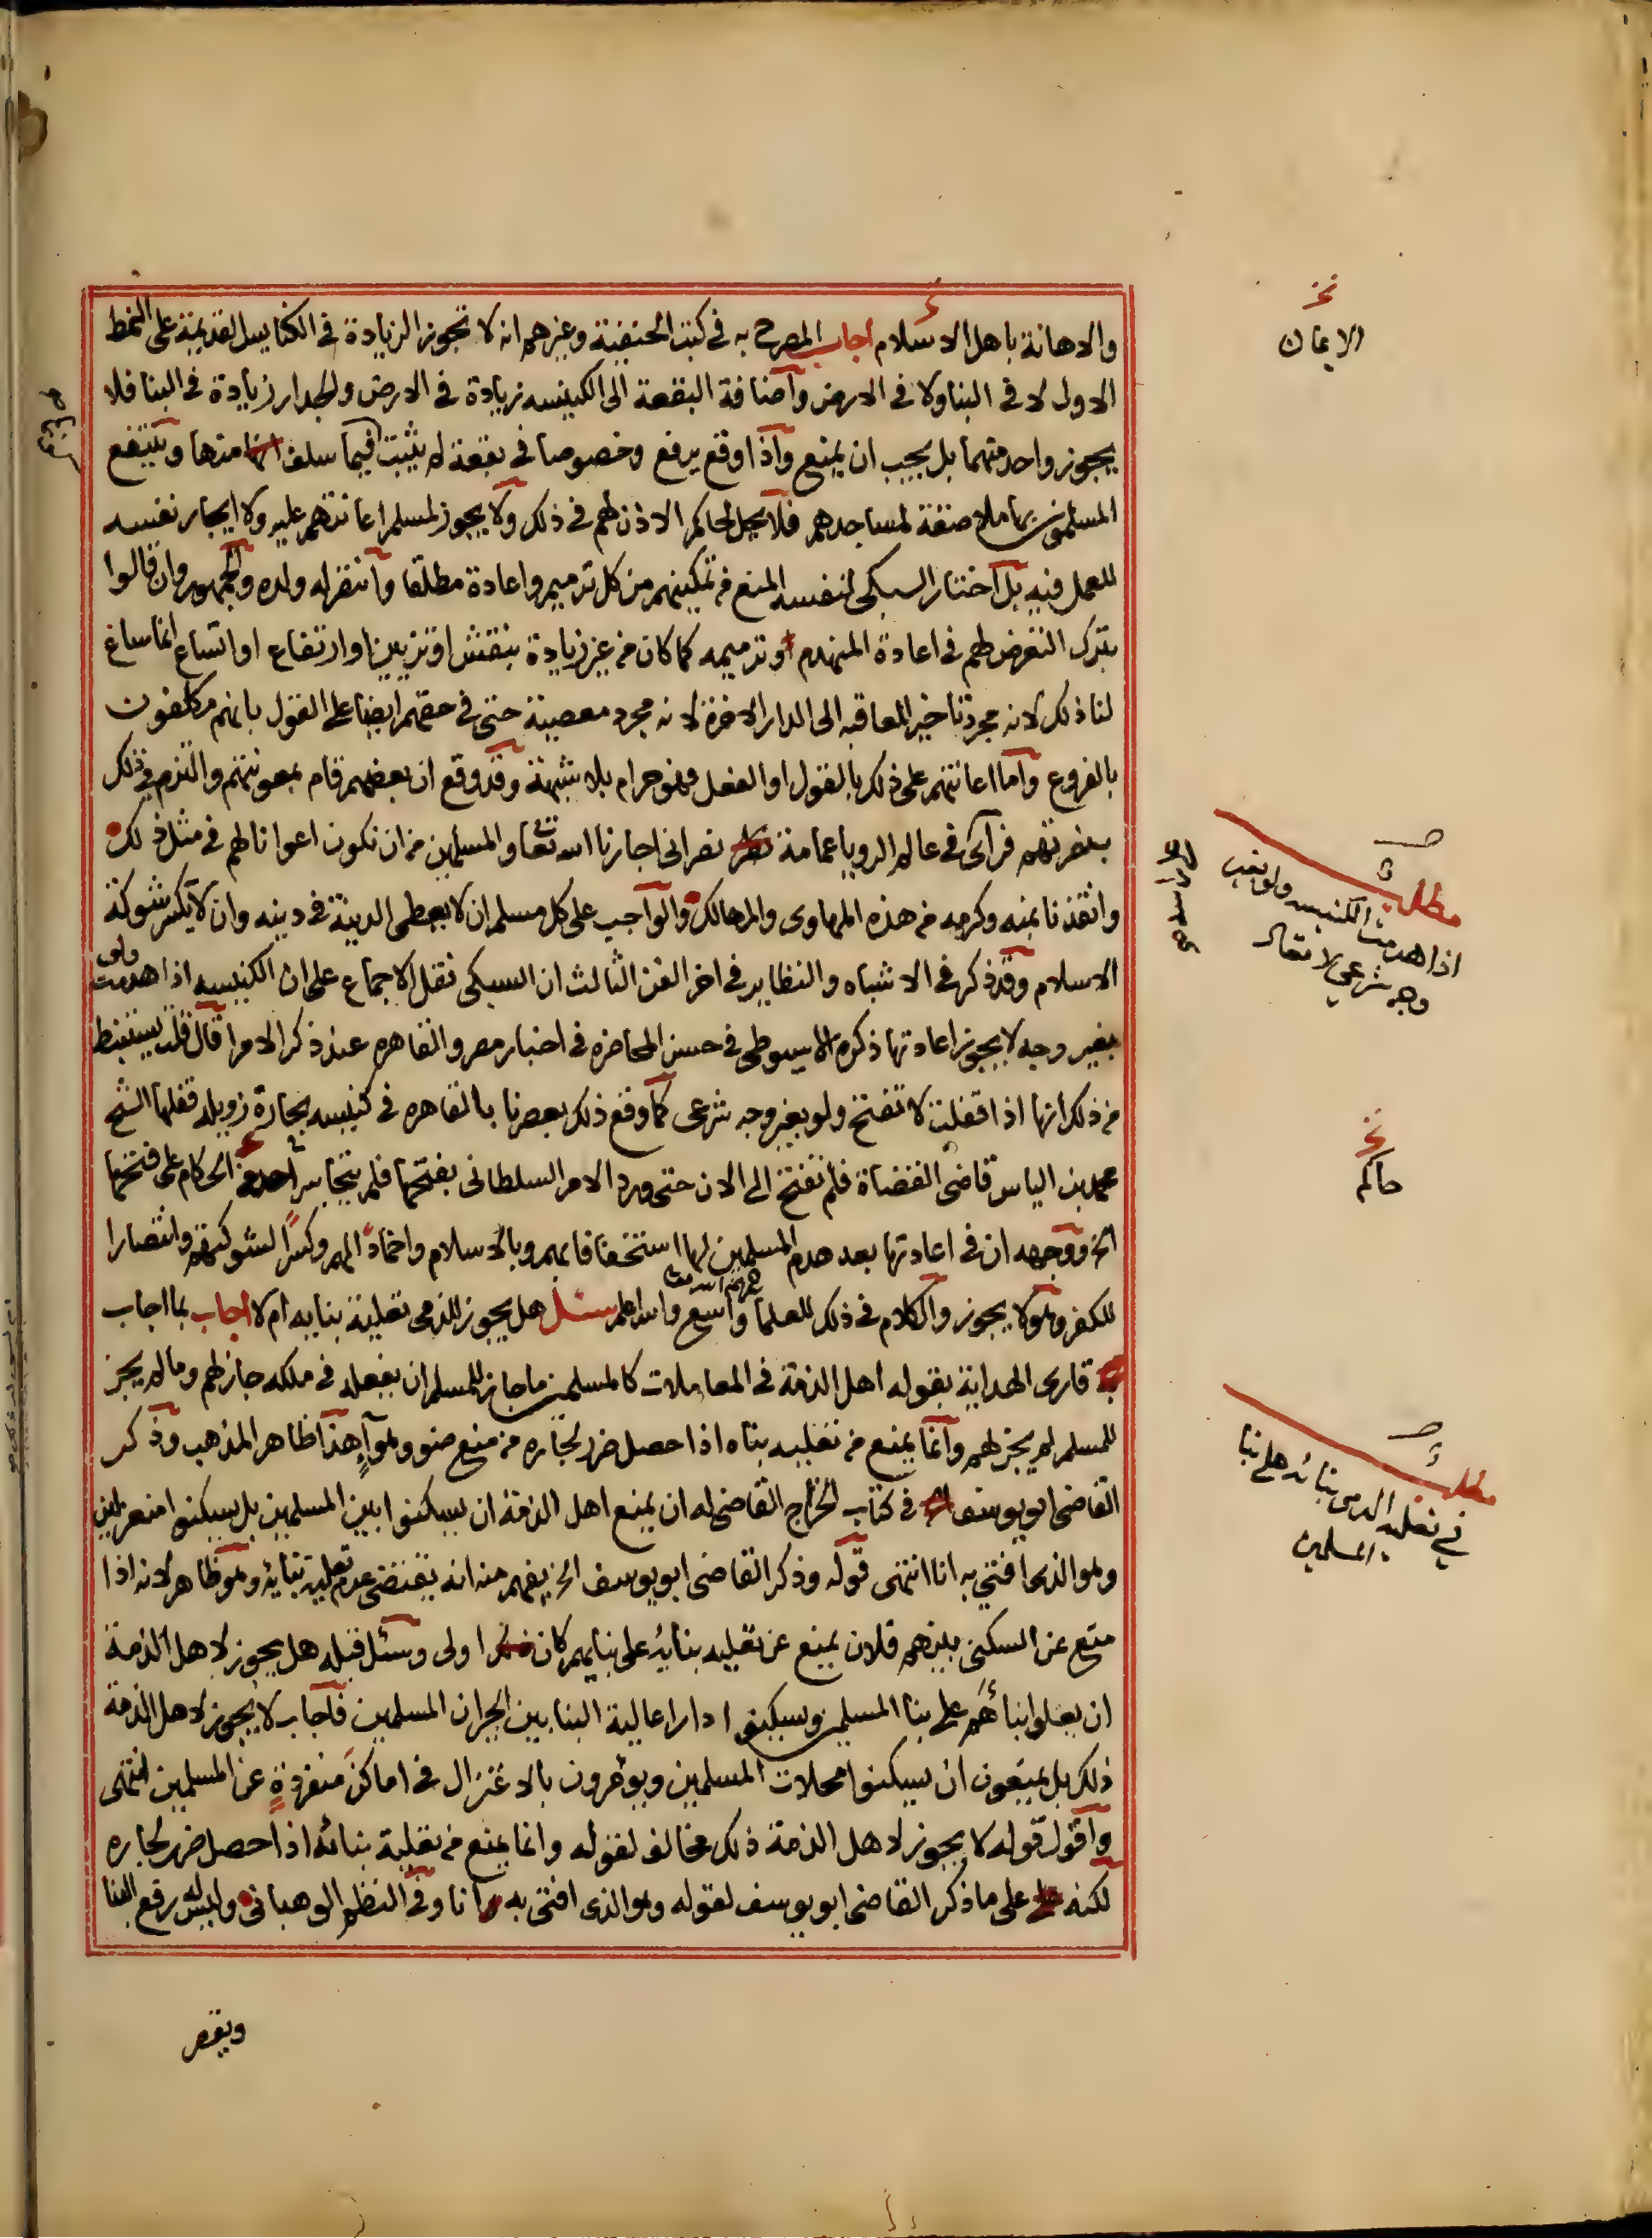 والاهانة باهل الاسلام اجاب المصرح به في كتب الحنفية وغيرهم انه لا تجوز الزيادة في الكنايس القديمة على النمط
الاول لا في البنا ولا في الارض واضافة البقعة الى الكنيسه زيادة في الارض والجدار زيادة في البنا فلا
يجوز واحد منهما بل يجب ان يمنع واذا وقع يرفع وخصوصا في بقعة لم يثبت فيما سلف انها منها وينتفع
المسلمون بها ملاصقة لمساجدهم فلا يحل لحاكم الاذن لهم في ذلك ولا يجوز لمسلم اعانتهم عليه ولا ايجار نفسه
للعمل فيه بل اختار السبكي لنفسه المنع من تمكينهم من كل ترميم واعادة مطلقا وانتصر له ولده والجمهور وان قالوا
بترك التعرض لهم في اعادة المنهدم او ترميمه كما كان من غير زيادة بنقش او تزيين او ارتفاع او اتساع انما ساغ
لنا ذلك لانه مجرد تاخير المعاقبه الى الدار الاخرة لانه مجرد معصية حتى في حقهم ايضا على القول بانهم مكلفون
بالفروع واما اعانتهم على ذلك بالقول او الفعل فهو حرام بلا شبهة وقد وقع ان بعضهم قام بمعونتهم والتزم في ذلك
بنصرتهم فرآى في عالم الرويا عمامة نصرانى اجارنا الله تعا والمسلمين من ان نكون اعوانا لهم في مثل ذلك
وانقذنا بمنه وكرمه من هذه المهاوى والمهالك والواجب على كل مسلم ان لا يعطى الدنية في دينه وان لا يكسر شوكة
الاسلام وقد ذكر في الاشباه والنظاير في اخر الفن الثالث ان السبكى نقل الاجماع على ان الكنيسه اذا هدمت ولو
بغير وجه لا يجوز اعادتها ذكره السيوطى في حسن المحاضره في اخبار مصر والقاهره عند ذكر الامرا قال قلت يستنبط
من ذلك انها اذا قفلت لا تفتح ولو بغير وجه شرعى كما وقع ذلك بعصرنا بالقاهره في كنيسه بحارة زويله قفلها الشيخ
محمد بن الياس قاضى القضاة فلم تفتح الى الان حتى ورد الامر السلطانى بفتحها فلم يتجاسر احد من الحكام على فتحها
الخ ووجهه ان في اعادتها بعد هدم المسلمين لها استخفافا بهم وبالاسلام واخمادا لهم وكسرا لشوكتهم وانتصارا
للكفر وهو لا يجوز والكلام في ذلك للعلما واسع والله اعلم سئل هل يجوز للذمى تعلية بنايه ام لا اجاب بما اجاب
به قارى الهداية بقوله اهل الذمة في المعاملات كالمسلمين ما جاز للمسلم ان يفعله في ملكه جاز لهم وما لم يجز
للمسلم لم يجز لهم وانما يمنع من تعليه بناه اذا حصل ضرر لجاره من منع ضوء وهواء هذا ظاهر المذهب وذكر
القاضى ابو يوسف في كتاب الخراج القاضى له ان يمنع اهل الذمة ان يسكنوا بين المسلمين بل يسكنوا منعزلين
وهو الذى افتى به انا انتهى قوله وذكر القاضى ابو يوسف الخ يفهم منه انه يقتضى عدم تعلية بنايه وهو ظاهر لانه اذا
منع عن السكنى بينهم فلان يمنع عن تعليه بنايه على بنايهم كان اولى وسئل قبله هل يجوز لاهل الذمة
ان يعلوا بناءهم على بنا المسلمين ويسكنوا دارا عالية البنا بين الجيران المسلمين فاجاب لا يجوز لاهل الذمة
ذلك بل يمنعون ان يسكنوا محلات المسلمين ويؤمرون بالاعتزال في اماكن منفردة عن المسلمين انتهى
واقول قوله لا يجوز لاهل الذمة ذلك مخالف لقوله وانما يمنع من تعلية بنائه اذا حصل ضرر لجاره
لكنه على ما ذكر القاضى ابو يوسف لقوله وهو الذى افتى به انا وفي النظم الوهبانى وليس له رفع البنا
ويقصر
نخ
الايمان
مطلب
اذا هدمت الكنيسه ولو بغير
وجه شرعي لا تعاد
نخ
حاكم
مطلب
في تعليه الذمى بنائه على بنا
المسلمين